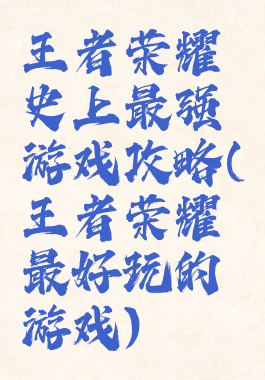 王者荣耀
史上最强
游戏攻略(
王者荣耀
最好玩的
游戏)